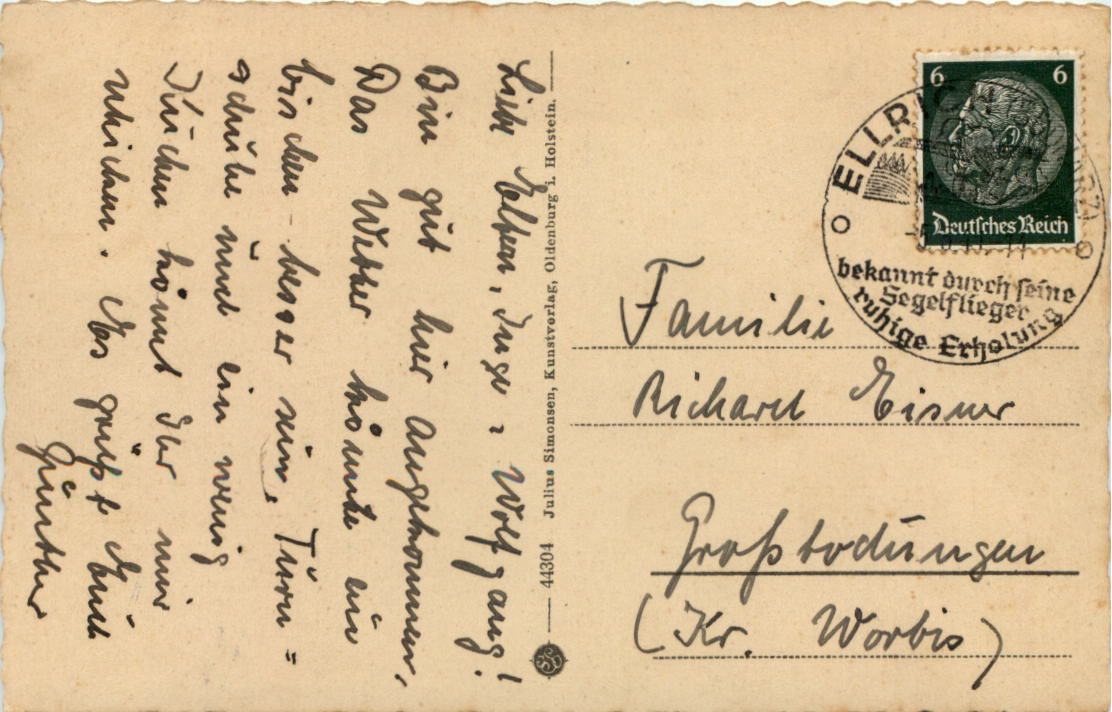 Liebe Eltern, Inge u. Wolfgang!
Bin gut hier angekommen,
Das Wetter könnte ein
bischen besser sein, Turn=
schuhe und ein wenig
Kuchen könnt Ihr mir
schicken. Es grüßt Euch
Günther
44304 Julius Simonsen, Kunstverlag, Oldenburg i. Holstein.
6 6
Deutsches Reich
ELLRICH
bekannt durch seine
Segelflieger
ruhige Erholung
Familie
Richard Eisner
Großbodungen
(Kr. Worbis)